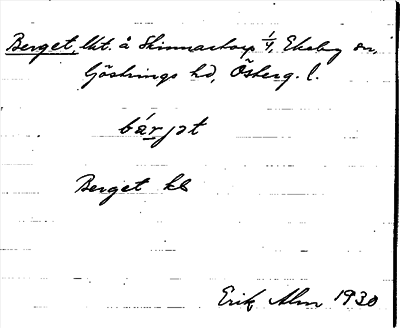 Berget, lht. å Skinnarstorp 1/4, Ekeby sn,
Göstrings hd, Österg. l.
bárjət
Berget kb
Erik Alm 1930